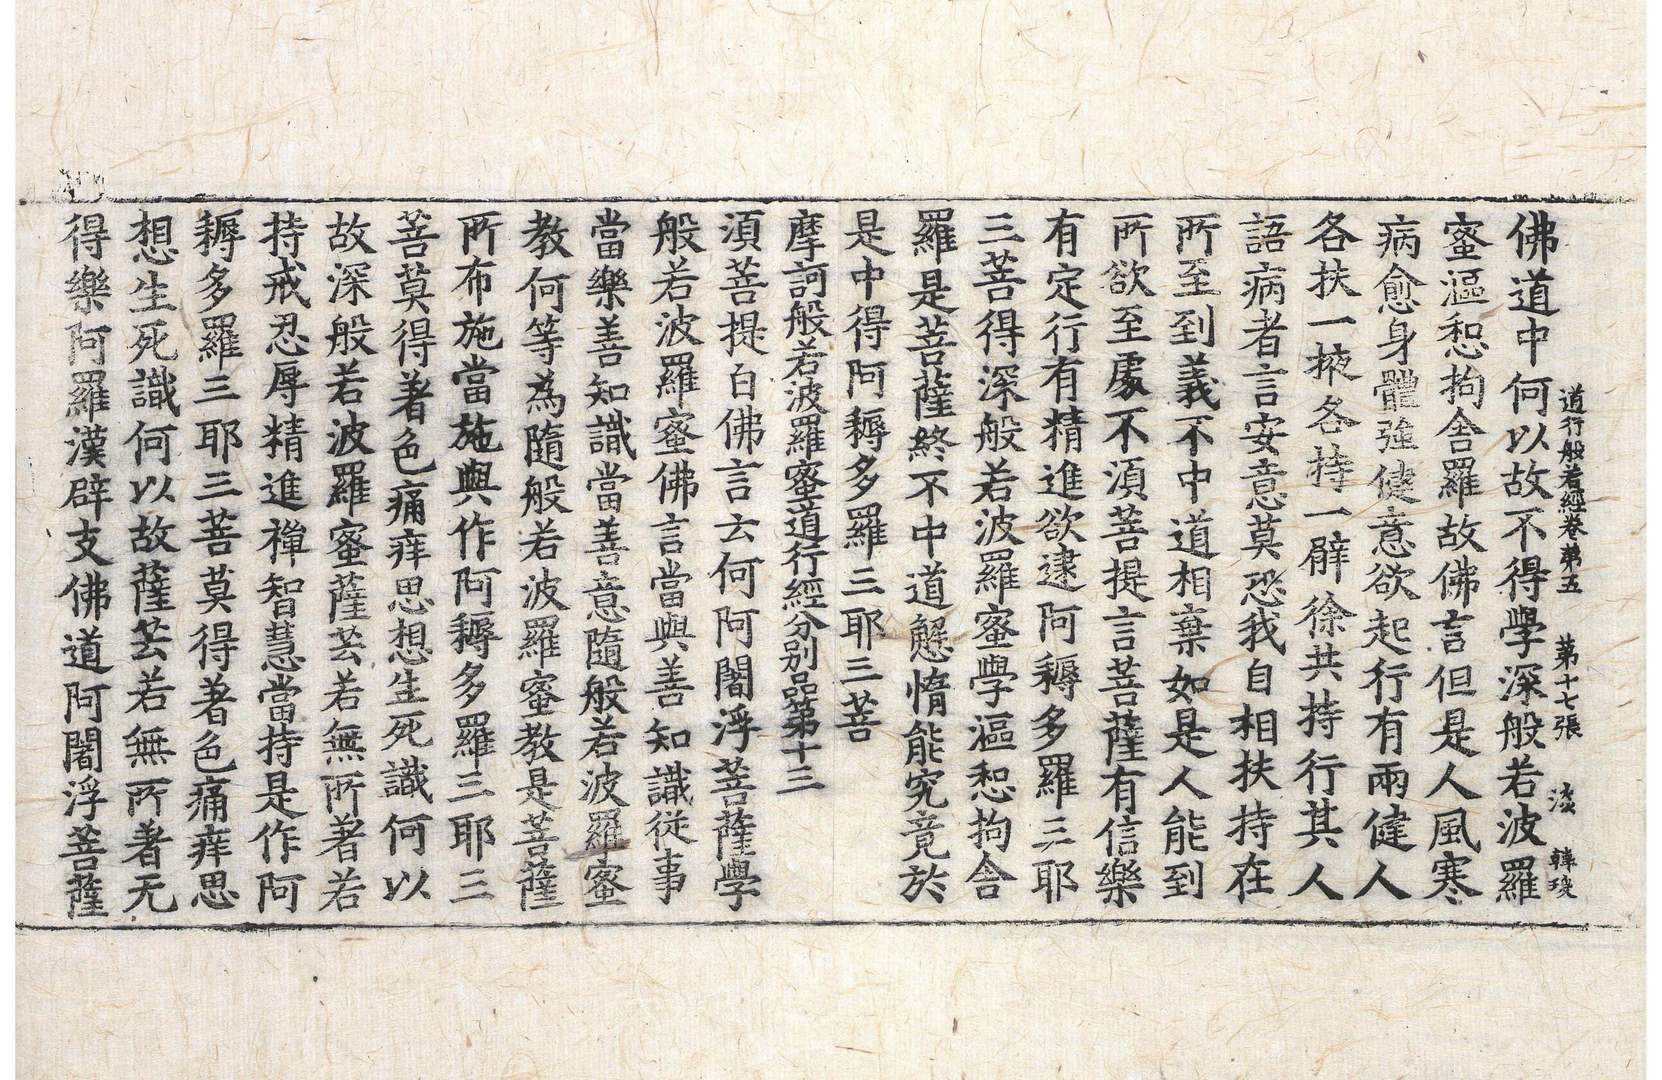 道行般若經卷苐五 苐十七張 淡 韓
佛道中何以故不得學深般若波羅
蜜漚惒拘舍羅故佛言但是人風寒
病愈身體強健意欲起行有兩健人
各扶一掖各持一臂徐共持行其人
語病者言安意莫恐我自相扶持在
所至到義不中道相棄如是人能到
所欲至處不須菩提言菩薩有信樂
有定行有精進欲逮阿耨多羅三耶
三菩得深般若波羅蜜學漚惒拘舍
羅是菩薩終不中道懈惰能究竟於
是中得阿耨多羅三耶三菩
摩訶般若波羅蜜道行經分別品苐十三
須菩提白佛言云何阿闍浮菩薩學
般若波羅蜜佛言當與善知識從事
當樂善知識當善意隨般若波羅蜜
教何等為隨般若波羅蜜教是菩薩
所布施當施與作阿耨多羅三耶三
菩莫得著色痛痒思想生死識何以
故深般若波羅蜜薩芸若無所著若
持戒忍辱精進禪智慧當持是作阿
耨多羅三耶三菩莫得著色痛痒思
想生死識何以故薩芸若無所著无
得樂阿羅漢辟支佛道阿闍浮菩薩